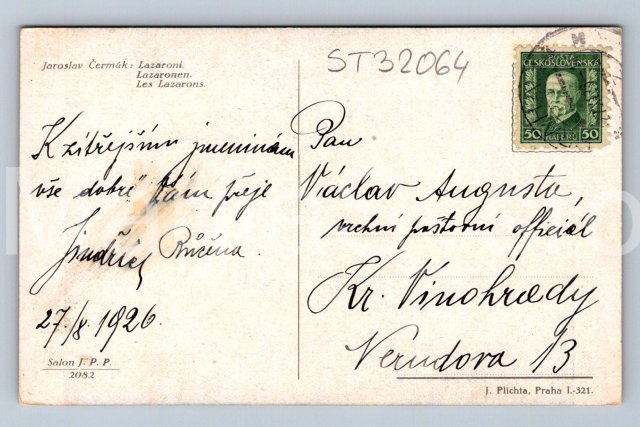 Jaroslav Čermák: Lazaroni.
Lazaronen.
Les Lazarons.
ST32064
POŠTA
ČESKOSLOVENSKÁ
50 HALÉŘŮ 50
K zítřejším jmeninám
vše dobré Vám přeje
Jindřich Růčena.
27./X. 1926.
Salon J. P. P.
2082
Pan
Václav Augusta,
vrchní poštovní officiál
Kr. Vinohrady
Verdova 13
J. Plichta, Praha I.-321.